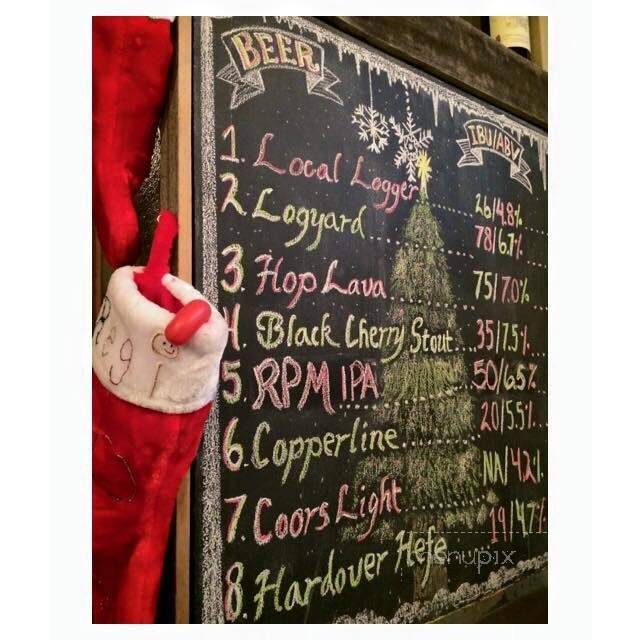 BEER
IBU/ABV
1. Local Logger 26/4.8%
2 Logyard 78/6.7%
3. Hop Lava 75/7.0%
4. Black Cherry Stout 35/7.5%
5. RPM IPA 50/6.5%
6. Copperline 20/5.5%
7. Coors Light NA/4.2%
8. Hardover Hefe 19/4.7%
Regi
menupix